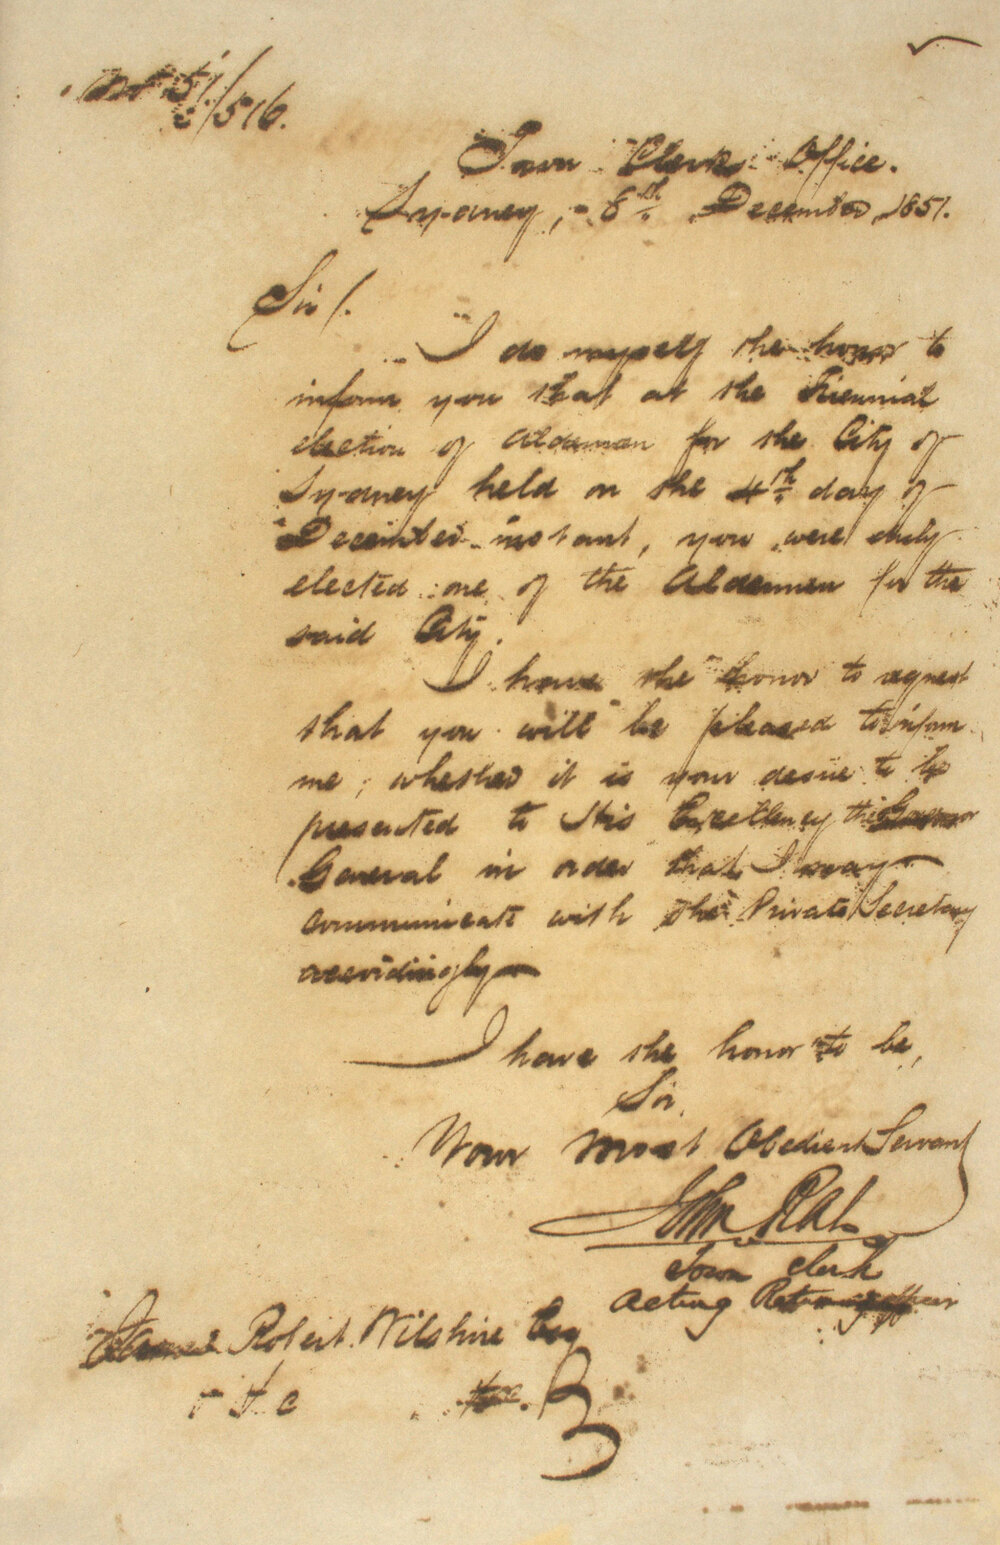 No 51/516.
Town Clerks Office.
Sydney, 8th December, 1851.
Sir/.
I do myself the honor to
inform you that at the Triennial
election of Alderman for the City of
Sydney held on the 4th day of
December instant, you were duly
elected one of the Aldermen for the
said City.
I have the honor to request
that you will be pleased to inform
me, whether it is your desire to be
presented to His Excellency the Governor
General in order that I may
communicate with the Private Secretary
accordingly
I have the honor to be,
Sir,
Your most Obedient Servant
John
Town Clerk
Acting Returning Officer
James Robert Wilshire Esq
&c.